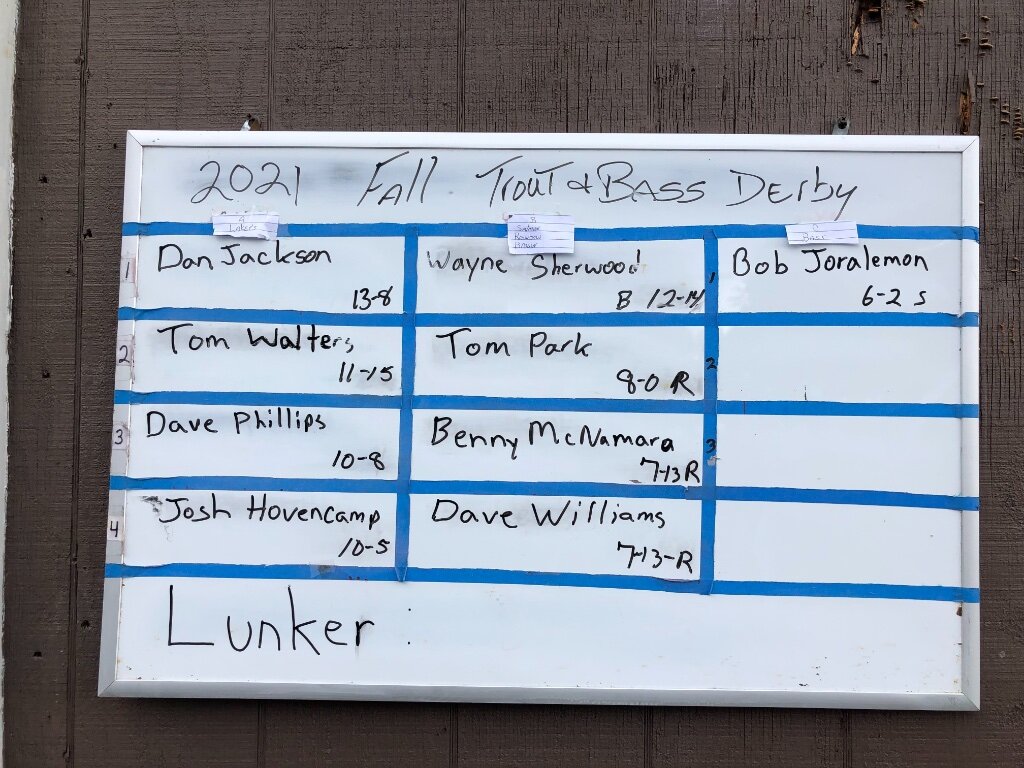 2021 Fall Trout & Bass Derby
A
Lakers
B
Salmon
Rainbow
Brown
C
Bass
1
Dan Jackson
13-8
Wayne Sherwood
B 12-14
1
Bob Joralemon
6-2 S
2
Tom Walters
11-15
Tom Park
8-0 R
2
3
Dave Phillips
10-8
Benny McNamara
7-13 R
3
4
Josh Hovencamp
10-5
Dave Williams
7-13-R
Lunker :